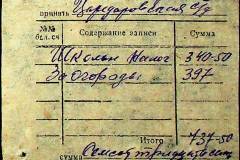 принять Царедаровская с/д
№№ бел. сч Содержание записи Сумма
Школьн налог 340-50
За огороды 397
Итого 737-50
Семсот тридцать сем